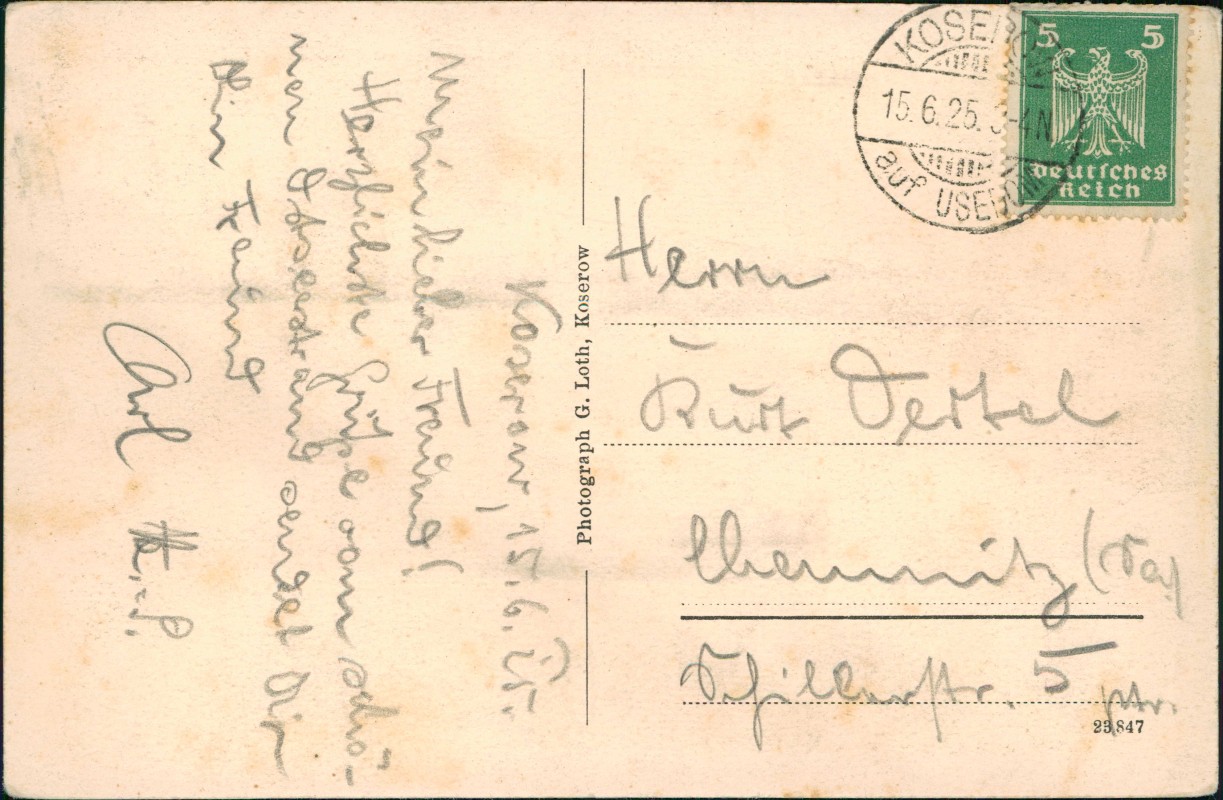 Koserow, 15.6.25.
Mein lieber Freund!
Herzlichste Grüße vom schö-
nen Ostseestrand sendet Dir
Dein Freund
Carl
Photograph G. Loth, Koserow
KOSEROW
15.6.25. 3-4N
auf USEDOM
5 5
Deutsches
Reich
Herrn
Kurt Oertel
Chemnitz (Sa)
Schillerstr. 5 ptr.
23847